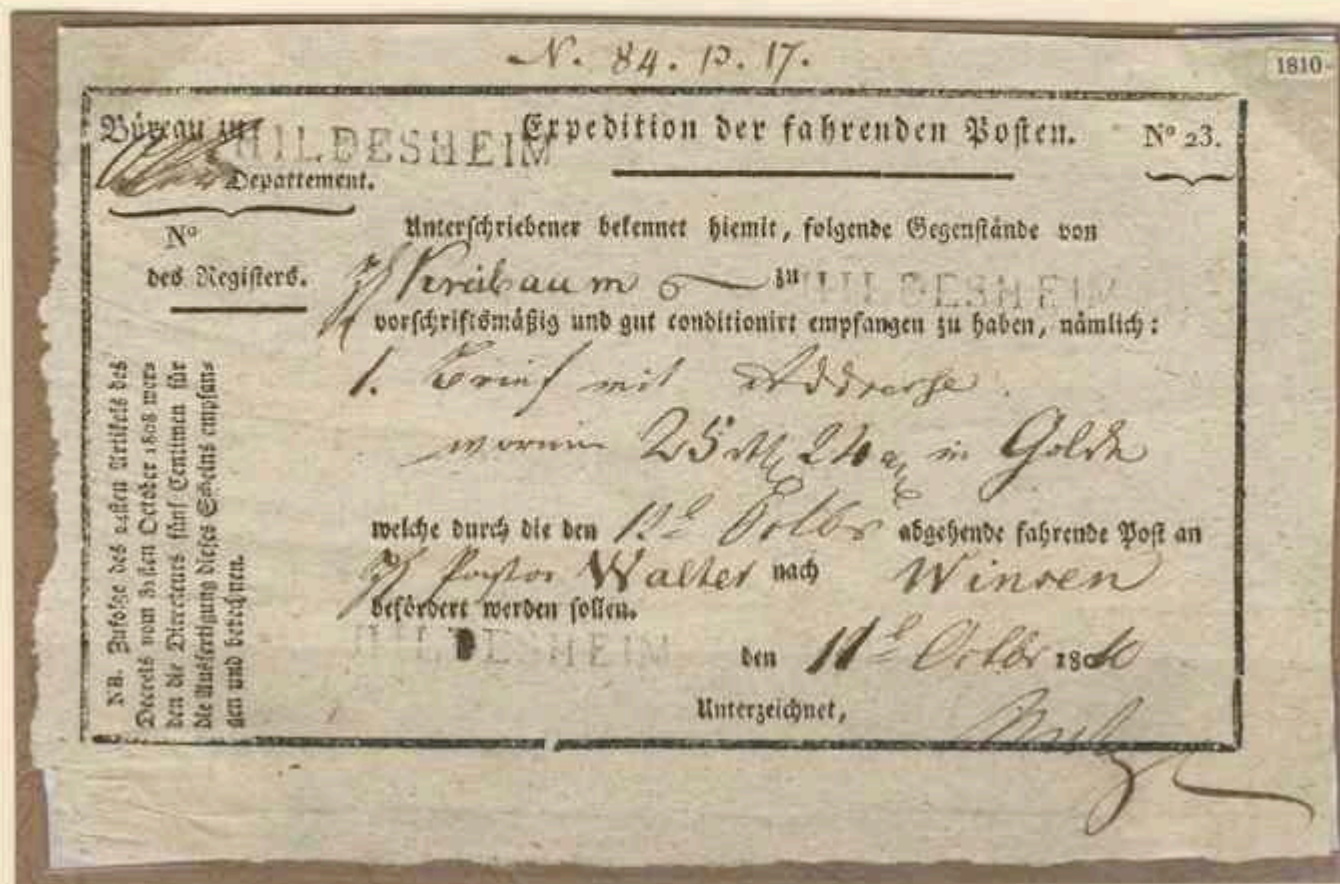 N. 84. p. 17.
1810
Büreau zu HILDESHEIM
Expedition der fahrenden Posten.
Nº 23.
Departement.
Nº
des Registers.
Unterschriebener bekennet hiemit, folgende Gegenstände von
zu HILDESHEIM
vorschriftsmäßig und gut conditionirt empfangen zu haben, nämlich:
1. Brief mit Addresse.
worin 25 24 in Golde
welche durch die den 12ᵗ Octbr abgehende fahrende Post an
Pastor Walter nach Winsen
befördert werden sollen.
HILDESHEIM
den 11ᵗ Octbr 1810
Unterzeichnet,
NB. Zufolge des Artikels des
Decrets vom 31sten October 1808 wer-
den die Directeurs fünf Centimen für
die Ausfertigung dieses Scheins empfan-
gen und berechnen.